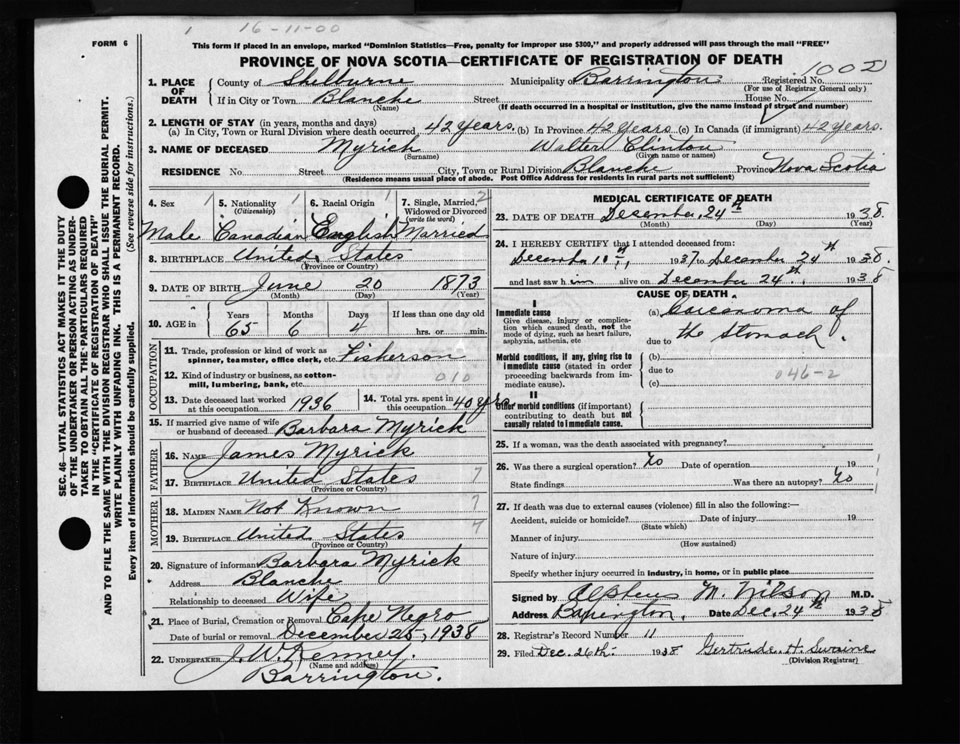 1 16-11-00
FORM 6
This form if placed in an envelope, marked "Dominion Statistics—Free, penalty for improper use $300," and properly addressed will pass through the mail "FREE"
PROVINCE OF NOVA SCOTIA—CERTIFICATE OF REGISTRATION OF DEATH
1002
1. PLACE OF DEATH
County of Shelburne Municipality of Barrington Registered No.
(For use of Registrar General only)
If in City or Town Blanche Street House No.
(Name) (If death occurred in a hospital or institution, give the name instead of street and number)
2. LENGTH OF STAY (in years, months and days)
(a) In City, Town or Rural Division where death occurred, 42 years. (b) In Province 42 years (c) In Canada (if immigrant) 42 years.
3. NAME OF DECEASED Myrick Walter Clinton
(Surname) (Given name or names)
RESIDENCE No. Street City, Town or Rural Division Blanche Province Nova Scotia
(Residence means usual place of abode. Post Office Address for residents in rural parts not sufficient)
4. Sex 1 5. Nationality 1 (Citizenship) 6. Racial Origin 1 7. Single, Married, Widowed or Divorced (write the word) 2
Male Canadian English Married
8. BIRTHPLACE United States
(Province or Country)
9. DATE OF BIRTH June 20 1873
(Month) (Day) (Year)
10. AGE in Years Months Days If less than one day old
65 6 4 hrs. or min.
OCCUPATION
11. Trade, profession or kind of work as spinner, teamster, office clerk, etc. Fisherson
12. Kind of industry or business, as cotton-mill, lumbering, bank, etc. 010
13. Date deceased last worked at this occupation 1936
14. Total yrs. spent in this occupation 40 yrs
15. If married give name of wife or husband of deceased Barbara Myrick
FATHER
16. Name James Myrick
17. Birthplace United States 7
(Province or Country)
MOTHER
18. Maiden Name Not Known 7
19. Birthplace United States 7
(Province or Country)
20. Signature of informant Barbara Myrick
Address Blanche
Relationship to deceased Wife
21. Place of Burial, Cremation or Removal Cape Negro
Date of burial or removal December 25, 1938
22. Undertaker J. W. Kenney.
(Name and address)
Barrington.
MEDICAL CERTIFICATE OF DEATH
23. DATE OF DEATH December, 24th 1938.
(Month) (Day) (Year)
24. I HEREBY CERTIFY that I attended deceased from:
December 10th, 1937 to December 24th 1938.
and last saw him alive on December 24th, 1938
CAUSE OF DEATH.
I
Immediate cause
Give disease, injury or complication which caused death, not the mode of dying, such as heart failure, asphyxia, asthenia, etc
(a) Carcinoma of
due to the stomach.
Morbid conditions, if any, giving rise to immediate cause (stated in order proceeding backwards from immediate cause).
(b)
due to
046-2
(c)
II
Other morbid conditions (if important) contributing to death but not causally related to immediate cause.
25. If a woman, was the death associated with pregnancy?
26. Was there a surgical operation? No Date of operation 19 1
State findings Was there an autopsy? No 1
27. If death was due to external causes (violence) fill in also the following:—
Accident, suicide or homicide? Date of injury 19
(State which)
Manner of injury
(How sustained)
Nature of injury
Specify whether injury occurred in industry, in home, or in public place
Signed by Alpheus M. Wilson M.D.
Address Barrington. Date Dec. 24th 1938
28. Registrar's Record Number 11
29. Filed Dec. 26th. 1938 Gertrude. H. Swaine
(Division Registrar)
SEC. 46—VITAL STATISTICS ACT MAKES IT THE DUTY
OF THE UNDERTAKER OR PERSON ACTING AS UNDERTAKER
TO OBTAIN ALL THE PARTICULARS REQUIRED
IN THE "CERTIFICATE OF REGISTRATION OF DEATH"
AND TO FILE THE SAME WITH THE DIVISION REGISTRAR WHO SHALL ISSUE THE BURIAL PERMIT.
WRITE PLAINLY WITH UNFADING INK. THIS IS A PERMANENT RECORD.
Every item of information should be carefully supplied. (See reverse side for instructions.)